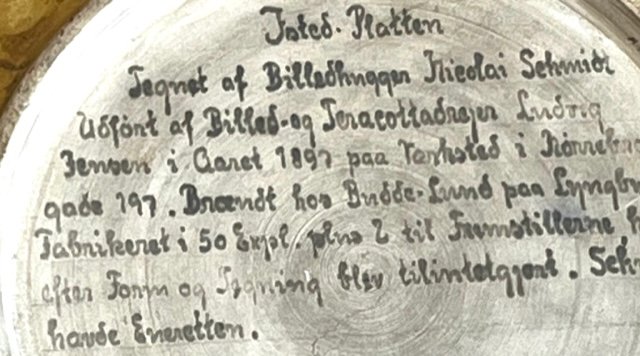 Isted-Platten
Tegnet af Billedhugger Nicolai Schmidt
Udført af Billed- og Teracottadrejer Ludvig
Jensen i Aaret 1897 paa Værksted i Nørrebro
gade 197. Brændt hos Budde-Lund paa Lyngby
Fabrikeret i 50 Expl. plus 2 til Fremstillerne h
efter Form og Tegning blev tilintetgjort. Sch
havde Eneretten.